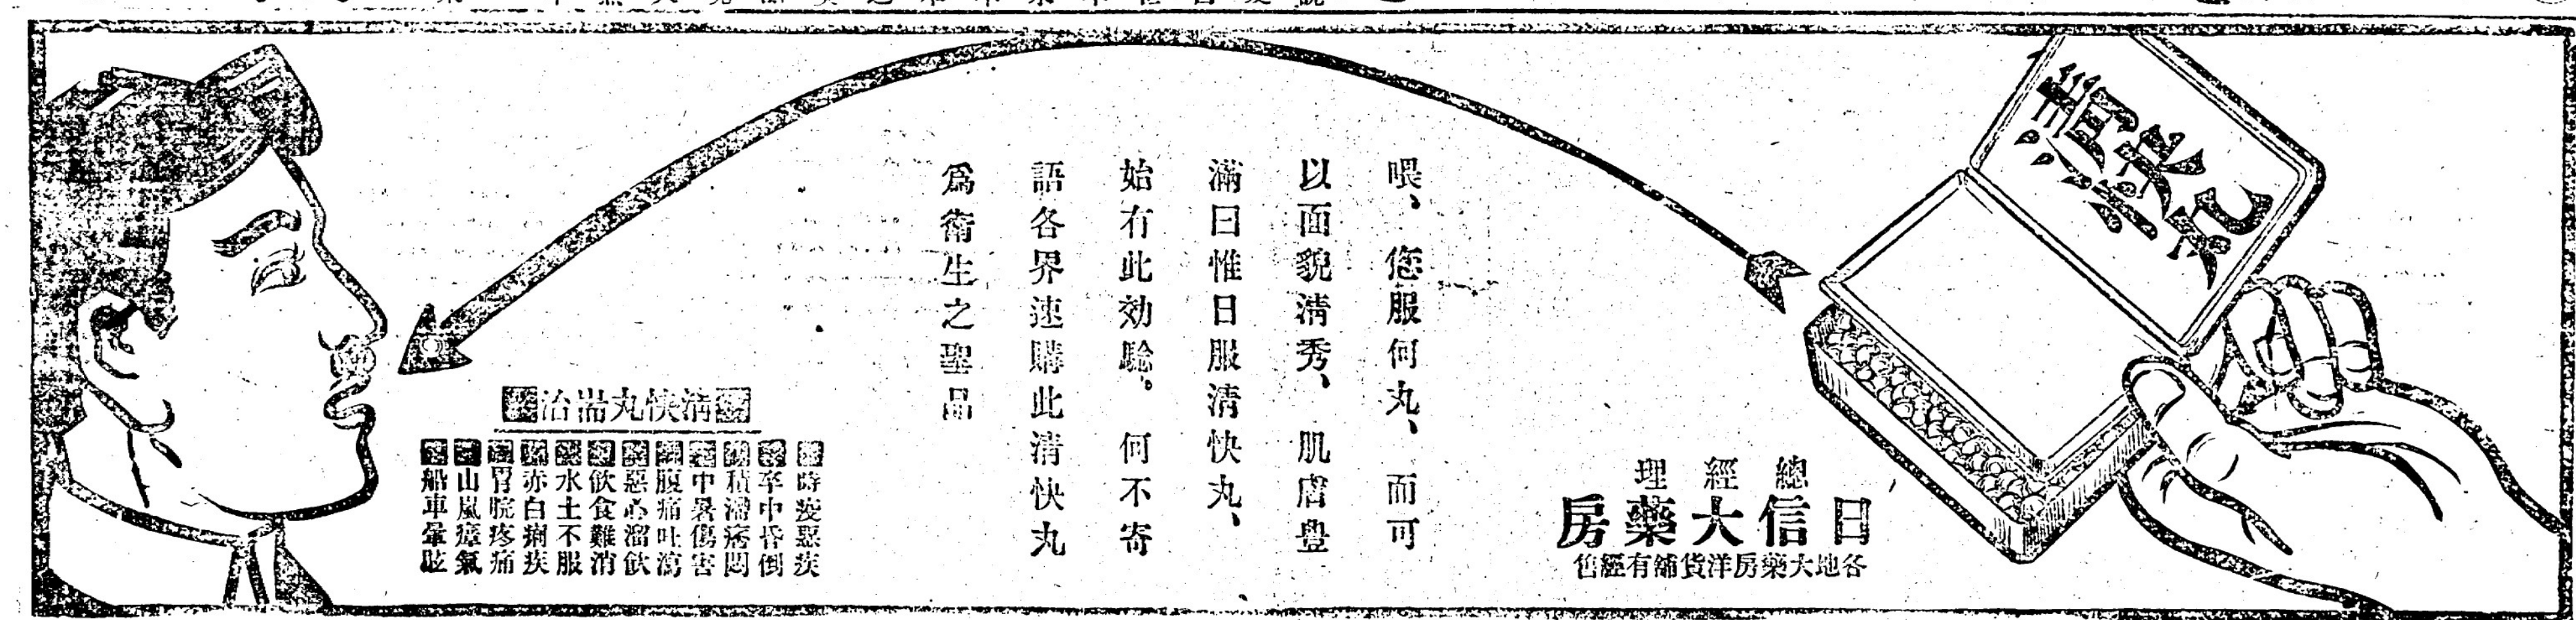 清快丸
喂、您服何丸、而可
以面貌清秀、肌膚豊
滿曰惟日服清快丸、
始有此効騐。何不寄
語各界速購此清快丸
爲衛生之聖品
總經理
日信大藥房
各地大藥房洋貨舖有經售
清快丸耑治
時疫惡疾
卒中昏倒
積滯痞悶
中暑傷害
腹痛吐瀉
惡心溜飲
飲食難消
水土不服
赤白痢疾
胃脘疼痛
山嵐瘴氣
船車暈眩